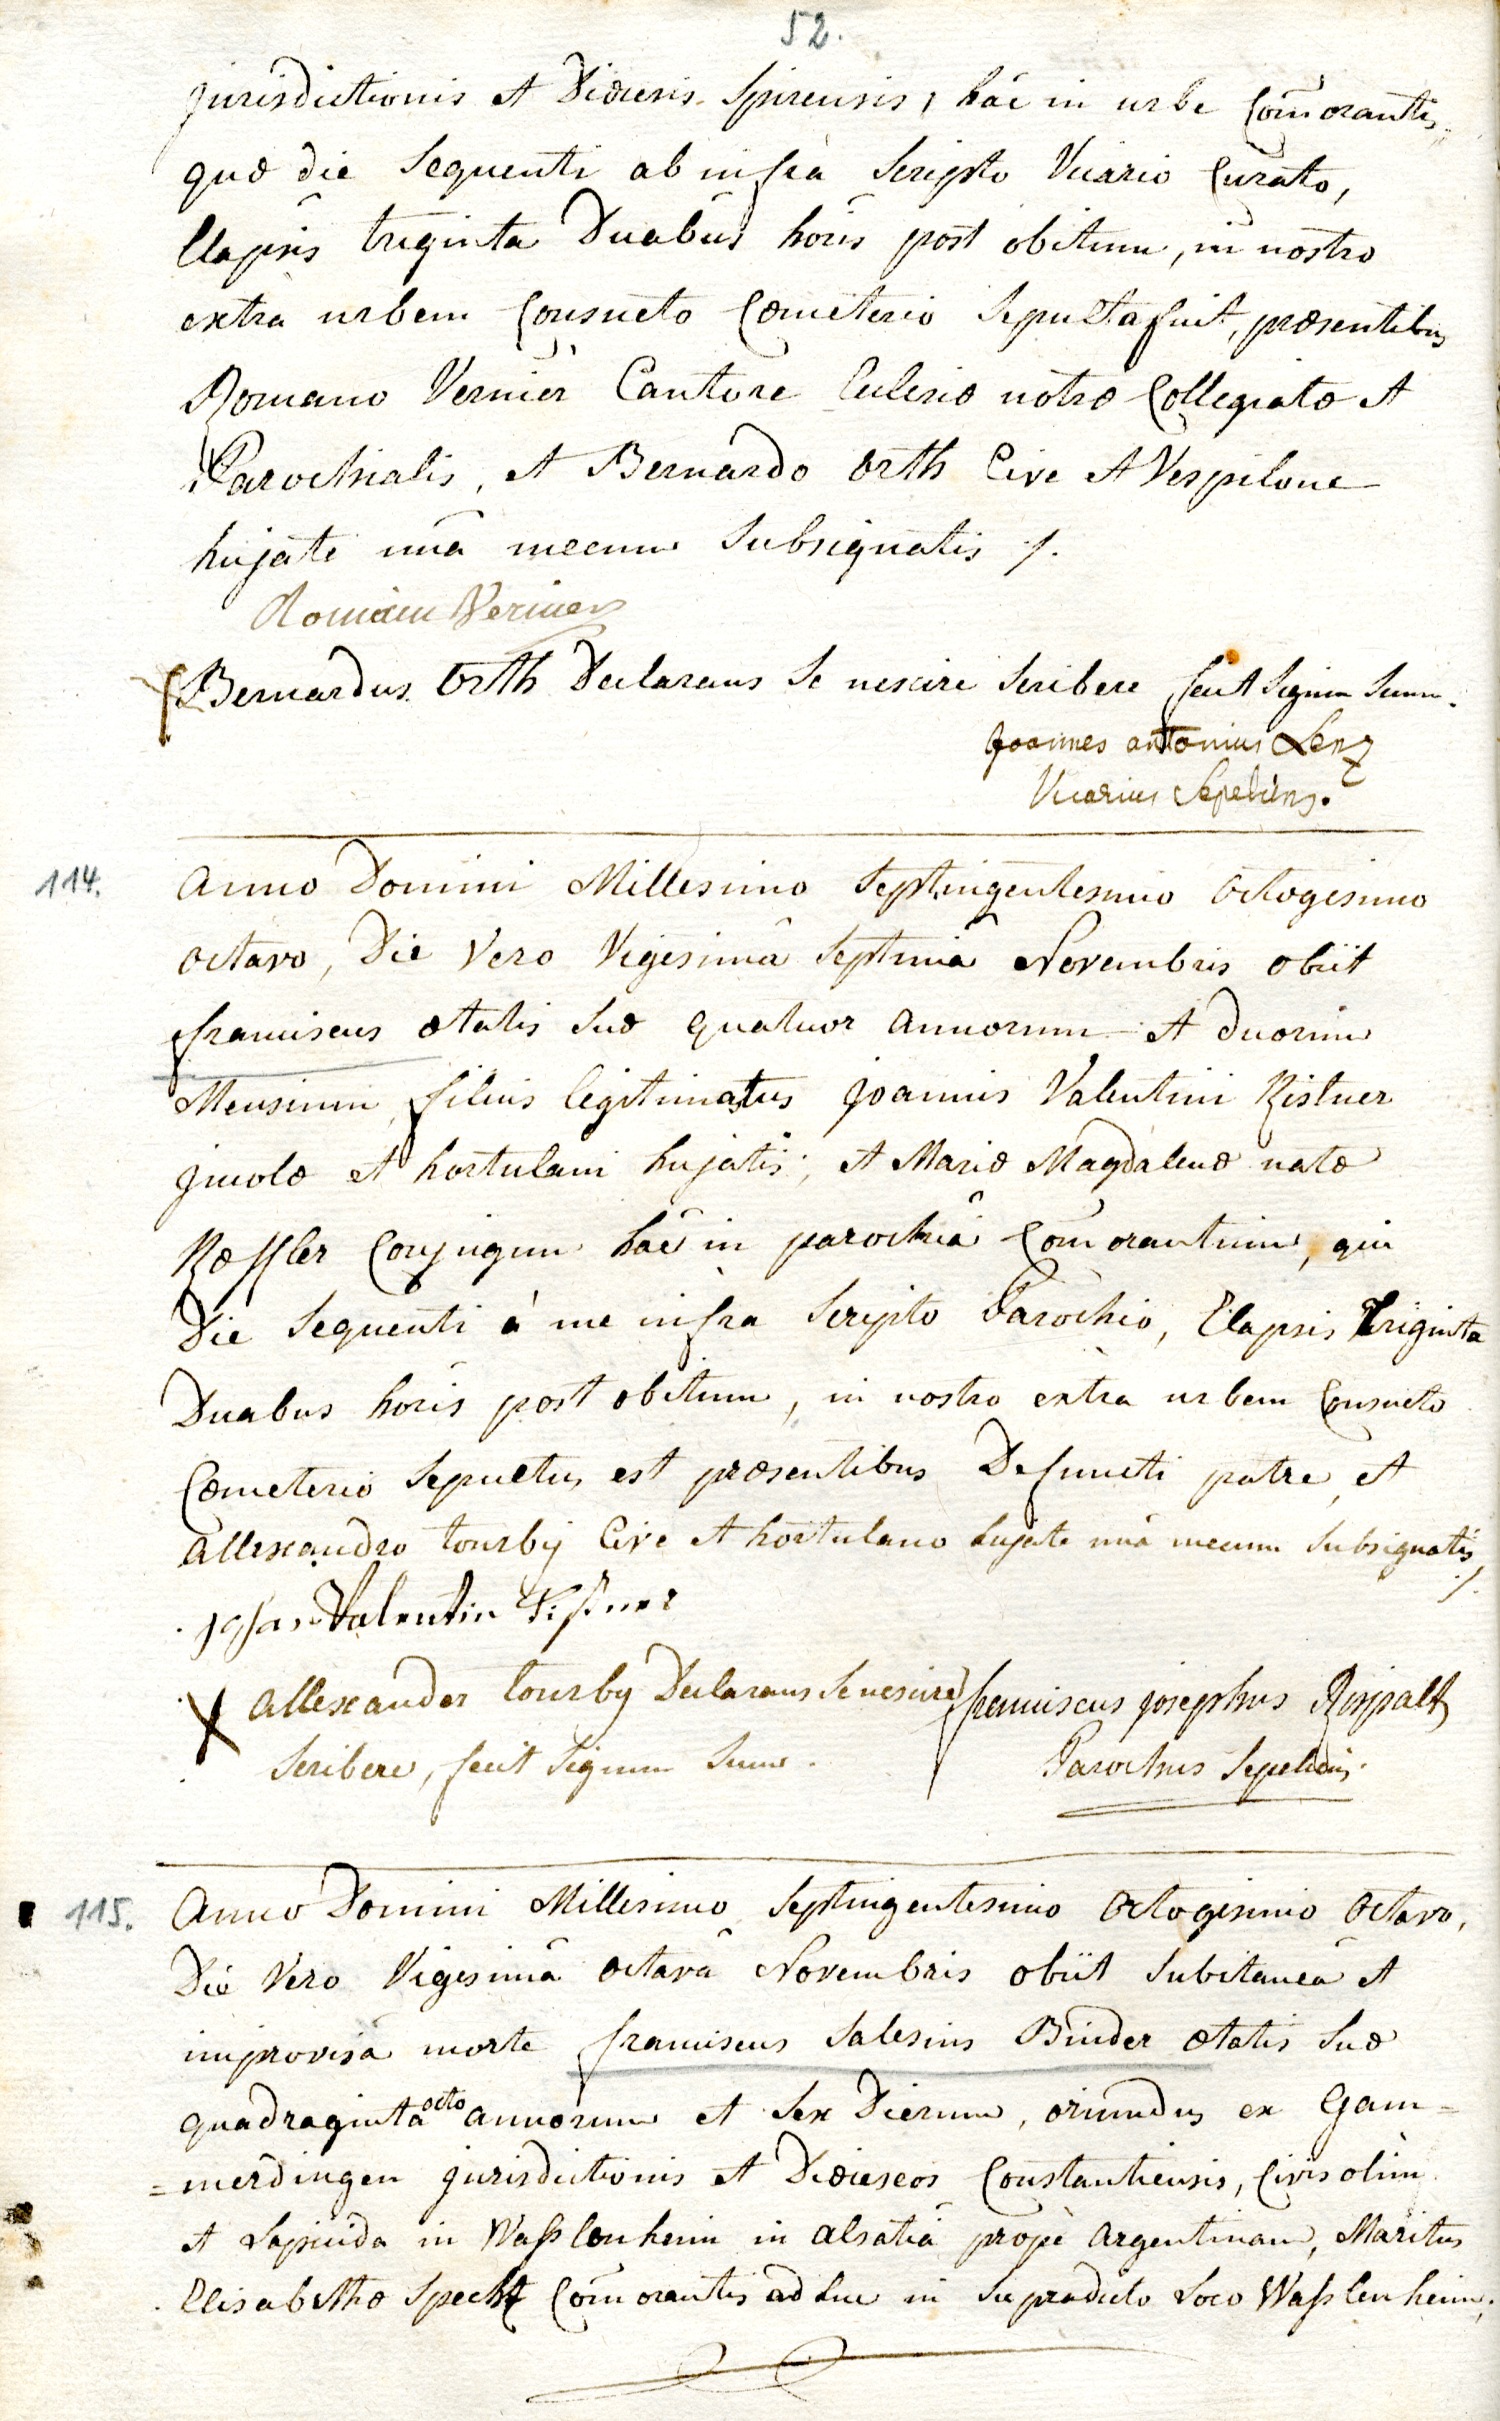 52.
jurisdictionis et Diœcesis Spirensis, hâc in urbe Com̃orantis,
quæ die Sequenti ab infra Scripto Vicario Curato,
Elapsis triginta Duabus horis post obitum, in nostro
extra urbem Consueto Cœmeterio Sepulta fuit, præsentibus
Romano Vernier Cantore Eclesiæ nostræ Collegiatæ et
Parochialis, et Bernardo Orth Cive et Vespilone
hujate unâ mecum Subsignatis ./.
Romain Vernier
Bernardus Orth Declarans Se nescire Scribere fecit Signum Suum.
Joannes antonius Lenz
Vicarius Sepeliens.
114.
Anno Domini Millesimo Septingentesimo Octogesimo
octavo, Die Vero Vigesimâ Septimâ Novembris obiit
franciscus ætatis Suæ quatuor annorum et duorum
Mensium, filius legitimatus Joannis Valentini Kistner
Jncolæ et hortulani hujatis, et Mariæ Magdalenæ natæ
Kœffler Conjugum hâc in parochiâ Com̃orantium, qui
Die Sequenti à me infra Scripto Parocho, Elapsis Triginta
Duabus horis post obitum, in nostro extra urbem Consueto
Cœmeterio Sepultus est præsentibus Defuncti patre, et
Allexandro tourby Cive et hortulano hujate unâ mecum Subsignatis
./.
Johan Valentin Kistner
Allexander tourby Declarans Se nescire
Scribere, fecit Signum Suum.
franciscus josephus Rispalt
Parochus Sepeliens.
115.
Anno Domini Millesimo Septingentesimo Octogesimo Octavo,
Die Vero Vigesimâ octavâ Novembris obiit Subitaneâ et
improvisâ morte franciscus Salesius Binder ætatis Suæ
quadraginta octo annorum et Sex Dierum, oriundus ex Gam=
=merdingen jurisdictionis et Diœceseos Constantiensis, Civis olim
et Lapicida in Wasslenheim in alsatiâ prope Argentinam, Maritus
Elisabethæ Specht Com̃orantis adhuc in Supradicto Loco Wasslenheim;